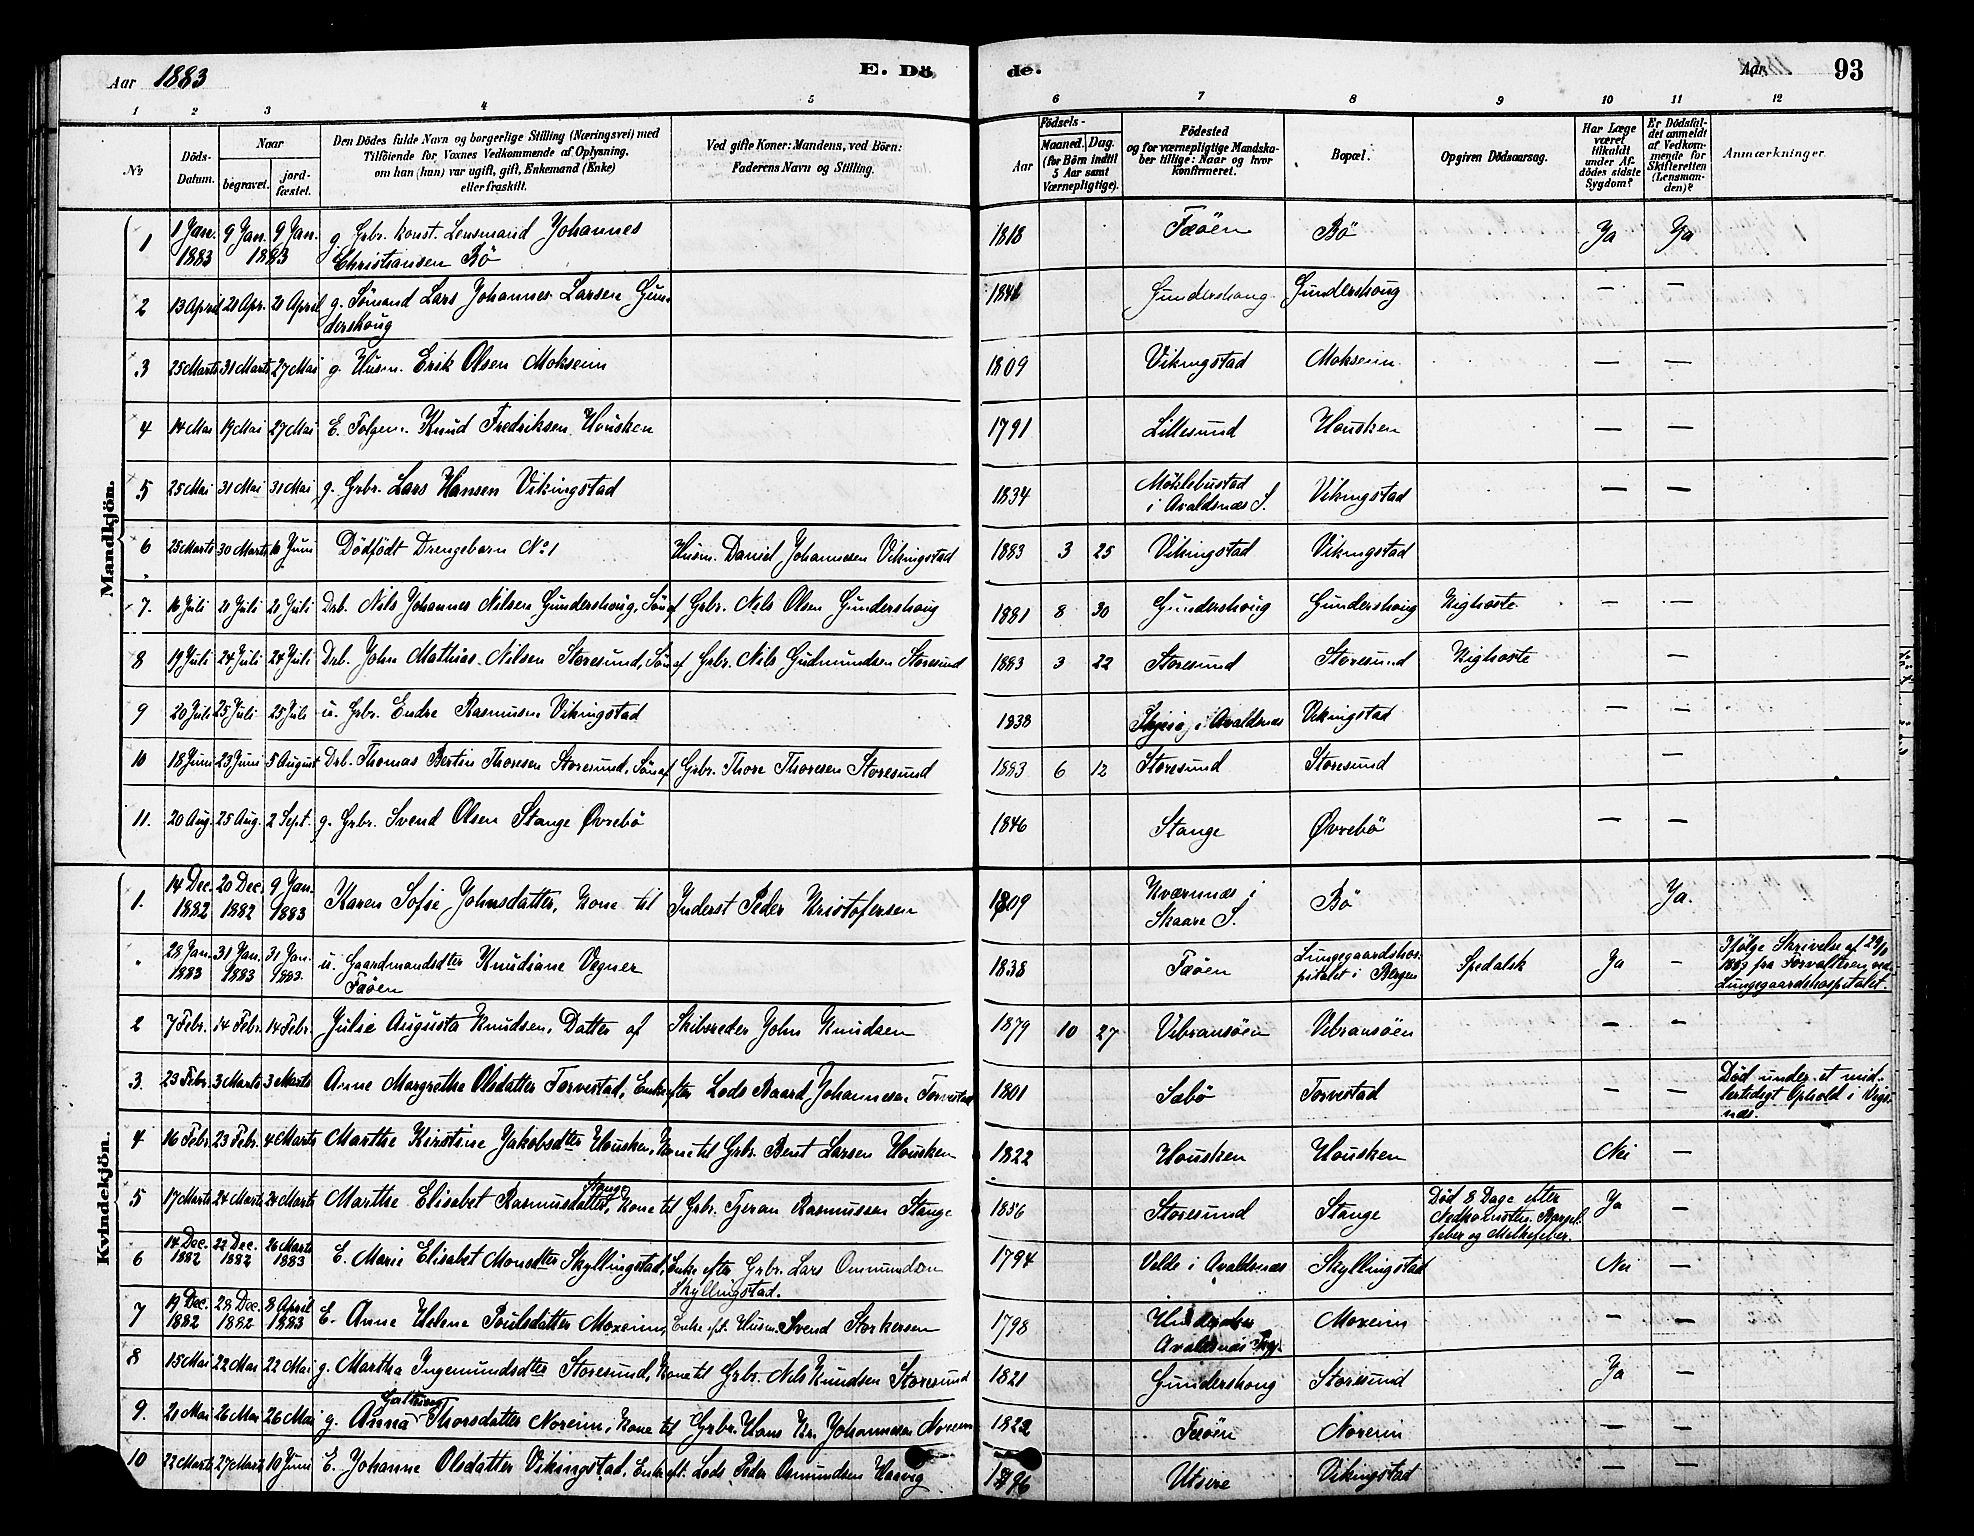 Aar 1883
E. Dö
de.
Aar
93
1 2 3 4 5 6 7 8 9 10 11 12
№
Döds-Datum.
Naar
begravet.
jord-fæstet.
Den Dödes fulde Navn og borgerlige Stilling (Næringsvei) med
Tilföiende for Voxnes Vedkommende af Oplysning,
om han (hun) var ugift, gift, Enkemand (Enke)
eller fraskilt.
Ved gifte Koner: Mandens, ved Börn:
Faderens Navn og Stilling.
Födsels-
Aar
Maaned. Dag.
(for Börn indtil
5 Aar samt
Værnepligtige).
Födested
og for værnepligtige Mandska-
ber tillige: Naar og hvor
konfirmeret.
Bopæl.
Opgiven Dödsaarsag.
Har Læge
været
tilkaldt
under Af-
dödes sidste
Sygdom?
Er Dödsfal-
det anmeldt
af Vedkom-
mende for
Skifteretten
(Lensman-
den)?
Anmærkninger.
Mandkjön.
1 1 Jan. 1883 9 Jan. 9 Jan. 1883 g. Grbr. konst. Lensmand Johannes Christiansen Bö 1818 Fæöen Bö Ja Ja
2 13 April 21 Apr. 21 April g. Sömand Lars Johannes Larsen Gundershoug Gundershoug Gundershoug — —
3 25 Marts 31 Marts 27 Mai g. Husm. Erik Olsen Mokseim 1809 Vikingstad Mokseim — —
4 14 Mai 19 Mai 27 Mai E. Folgem. Knud Fredriksen Housken 1791 Lillesund Housken — —
5 25 Mai 31 Mai 31 Mai g. Grbr. Lars Hansen Vikingstad 1834 Möklebustad i Avaldsnæs S. Vikingstad — —
6 25 Marts 30 Marts 10 Juni Dödfödt Drengebarn No 1 Husm. Daniel Johannesen Vikingstad 1883 3 25 Vikingstad Vikingstad
7. 16 Juli 21 Juli 21 Juli Drb. Nils Johannes Nilsen Gundershoug, Sön af Grbr. Nils Olsen Gundershoug 1881 8 30 Gundershoug Gundershoug Kighoste — —
8 19 Juli 24 Juli 24 Juli Drb. John Mathias Nilsen Storesund, Sön af Grbr. Nils Gudmundsen Storesund 1883 3 22 Storesund Storesund Kighoste —
9 20 Juli 25 Juli 25 Juli u. Grbr. Endre Rasmusen Vikingstad 1838 i Avaldsnæs Vikingstad — —
10 18 Juni 23 Juni 5 August Drb. Thomas Bertin Thoresen Storesund, Sön af Grbr. Thore Thoresen Storesund 1883 6 12 Storesund Storesund —
11. 20 Aug. 25 Aug. 2 Sept. g. Grbr. Svend Olsen Stange Øvrebö 1846 Stange Øvrebö — —
Kvindekjön.
1. 14 Dec. 1882 20 Dec. 1882 9 Jan. 1883 Karen Sofie Johnsdatter, Kone til Inderst Peder Kristofersen 1809 Kværnnæs i Skaare S. Bö Ja.
" 28 Jan. 1883 31 Jan. 1883 31 Jan. 1883 u. Gaardmandsdtter Knudiane Vegner Fæöen 1838 Fæöen Lungegaardshospitalet i Bergen Spedalsk Ja — Ifölge Skrivelse af fra Forvalteren ved Lungegaardshospitalet.
2 7 Febr. 14 Febr. 14 Febr. Julie Augusta Knudsen, Datter af Skibsreder John Knudsen 1879 10 27 Vibransöen Vibransöen — —
3. 23 Febr. 3 Marts 3 Marts Anne Margrethe Olsdatter Torvestad, Enke efter Lods Baard Johannesen Torvestad 1801 Sæbö Torvestad — — Död under et midlertidigt Ophold i Vigsnæs.
4 16 Febr. 23 Febr. 4 Marts Marthe Kirstine Jakobsdtter Housken, Kone til Grbr. Bent Larsen Housken 1822 Housken Housken Nei —
5 17 Marts 24 Marts 24 Marts Marthe Elisabet Rasmusdatter Stange, Kone til Grbr. Tjeran Rasmussen Stange 1856 Storesund Stange Död 8 Dage efter Nedkomsten. Barselfeber og Melkefeber. Ja —
6 14 Dec. 1882 22 Dec. 1882 26 Marts 1883 E. Marie Elisabet Monsdtter Skyllingstad, Enke efter Grbr. Lars Ommundsen Skyllingstad. 1794 Velde i Avaldsnæs Skyllingstad Nei —
7 19 Dec. 1882 28 Dec. 1882 8 April 1883 E. Anne Helene Poulsdatter Moxeim, Enke eft. Husm. Svend Storkersen 1798 Avaldsnæs Moxeim — —
8 15 Mai 22 Mai 22 Mai g. Martha Ingemundsdtter Storesund, Kone til Grbr. Nils Knudsen Storesund 1821 Gundershoug Storesund Ja —
9. 21 Mai 26 Mai 26 Mai g. Anna Thorsdatter Noreim, Kone til Grbr. Hans Kr. Johannesen Noreim 1822 Fæöen Noreim — —
10 22 Marts 27 Marts 10 Juni E. Johanne Olsdatter Vikingstad, Enke eft. Lods Peder Osmundsen Hasvig 1796 Utsire Vikingstad — —